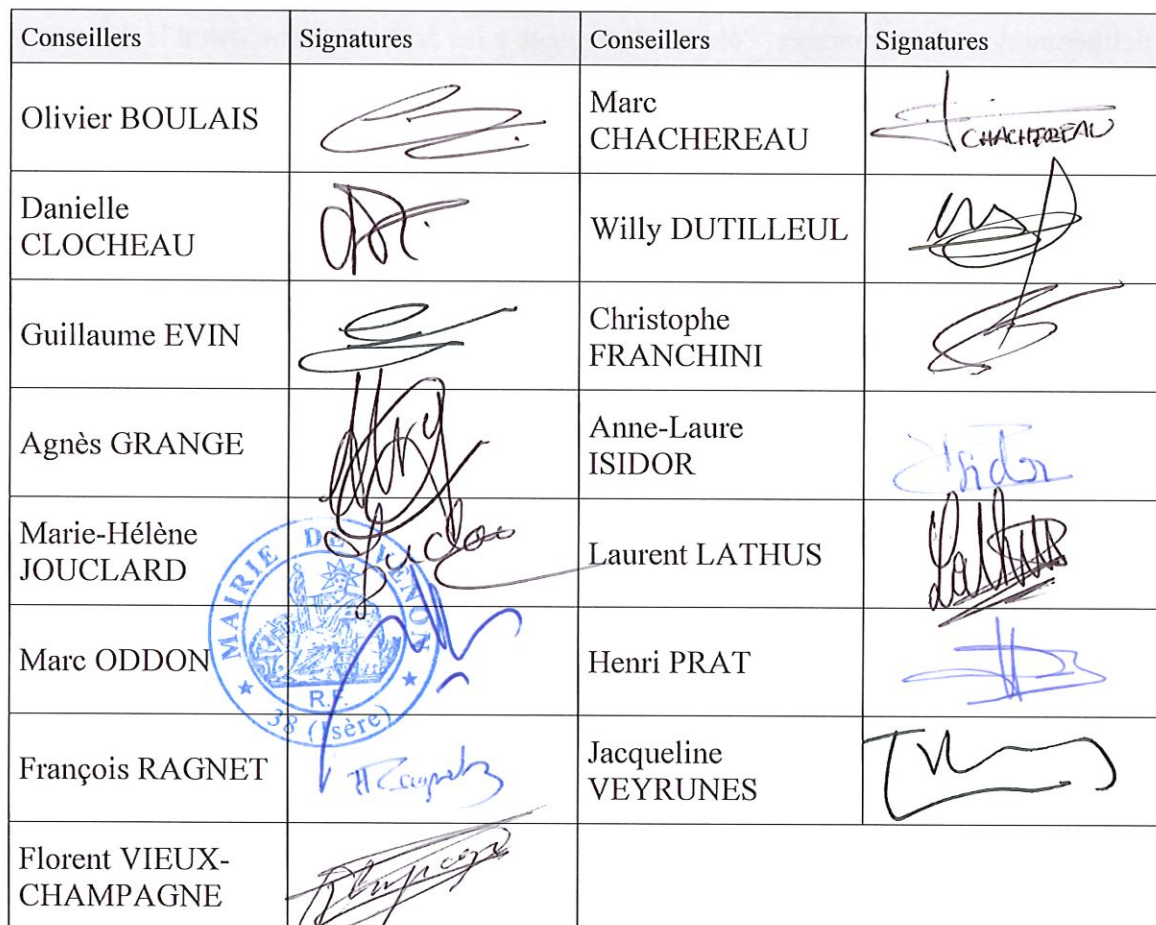 Conseillers Signatures Conseillers Signatures
Olivier BOULAIS
Marc
CHACHEREAU
CHACHEREAU
Danielle
CLOCHEAU
Willy DUTILLEUL
Guillaume EVIN
Christophe
FRANCHINI
Agnès GRANGE
Anne-Laure
ISIDOR
Isidor
Marie-Hélène
JOUCLARD
Laurent LATHUS
Lathus
MAIRIE DE VENON
R.F.
38 (Isère)
Marc ODDON
Henri PRAT
François RAGNET
Jacqueline
VEYRUNES
Florent VIEUX-
CHAMPAGNE